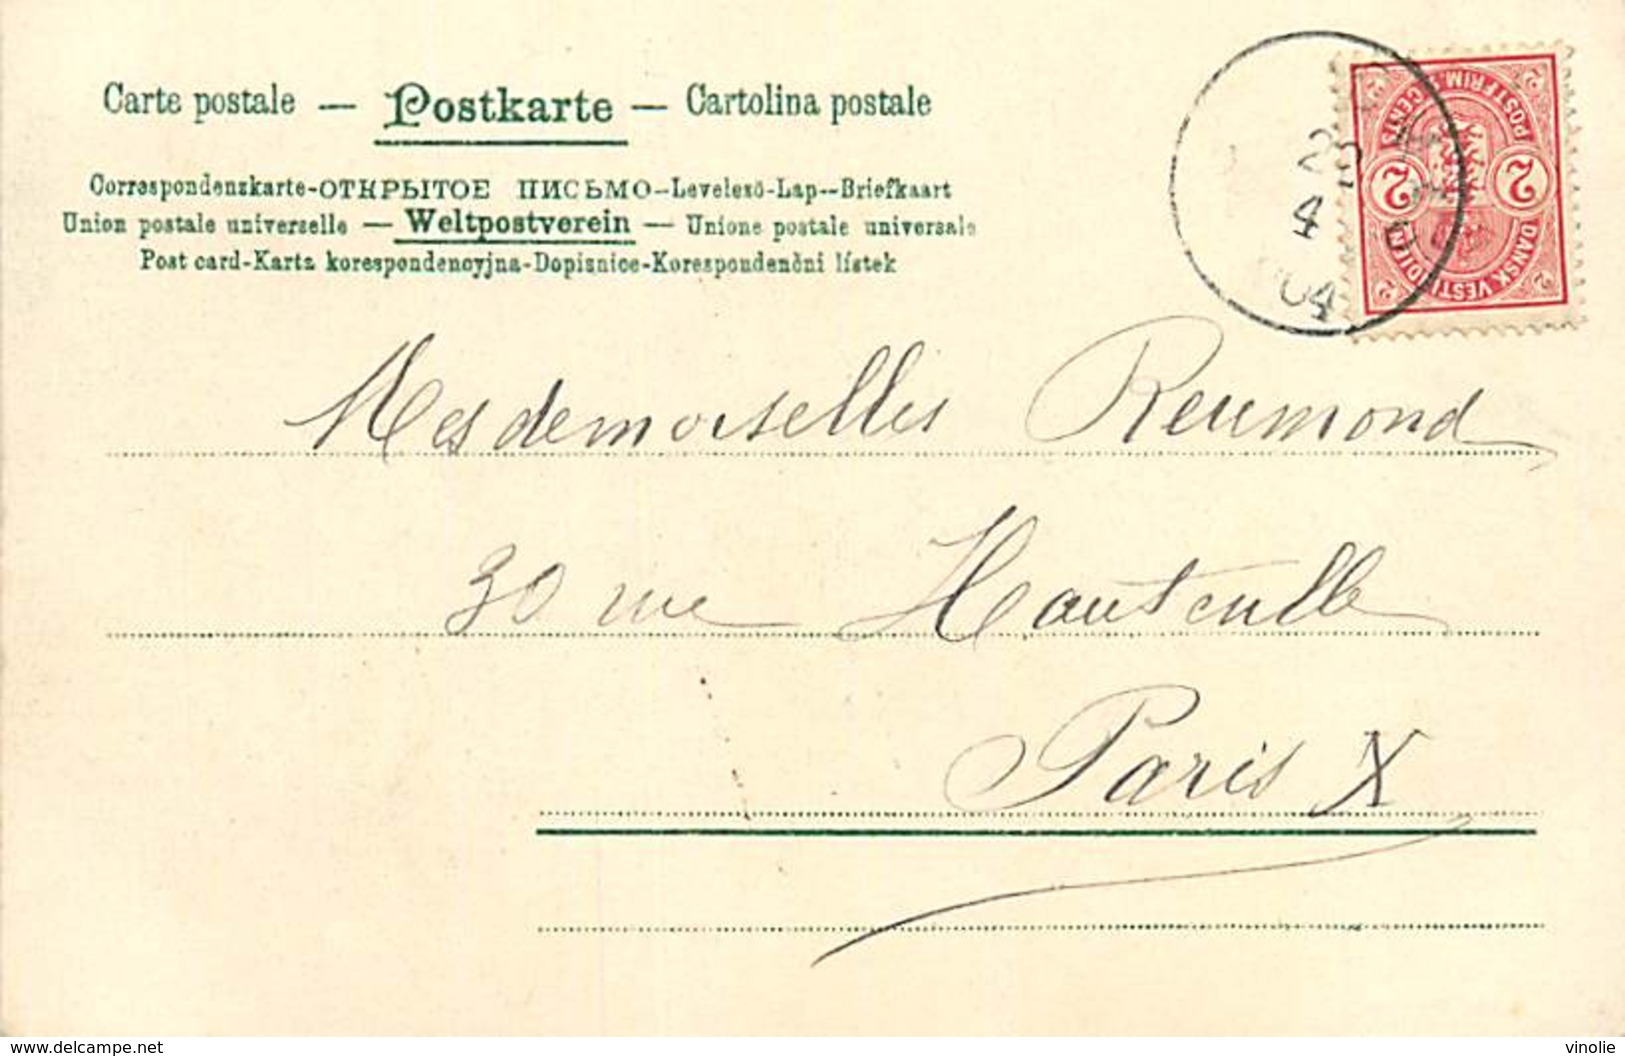 Carte postale — Postkarte — Cartolina postale
Correspondenzkarte-ОТКРЫТОЕ ПИСЬМО-Levelező-Lap--Briefkaart
Union postale universelle — Weltpostverein — Unione postale universale
Post card-Karta korespondencyjna-Dopisnice-Korespondenční lístek
POSTFRIM. 2 CENTS 2 DANSK VESTINDIEN
2 2 2 2
4
04
Mesdemoiselles Reumond
30 rue Hautefeuille
Paris X
www.delcampe.net
vinolie